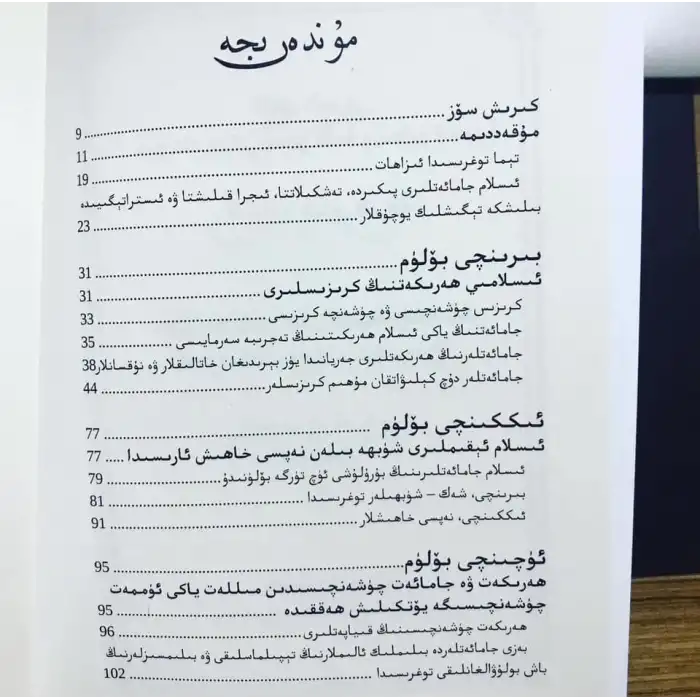 مۇندەرىجە
كىرىش سۆز ........................................ 9
مۇقەددىمە ........................................ 11
تېما توغرىسىدا ئىزاھات ........................................ 19
ئىسلام جامائەتلىرى پىكىردە، تەشكىلاتتا، ئىجرا قىلىشتا ۋە ئىستراتېگىيىدە
بىلىشكە تېگىشلىك بوچۇقلار ........................................ 23
بىرىنچى بۆلۈم ........................................ 31
ئىسلامىي ھەرىكەتنىڭ كرىزىسلىرى ........................................ 31
كرىزىس چۈشەنچىسى ۋە چۈشەنچە كرىزىسى ........................................ 33
جامائەتنىڭ ياكى ئىسلام ھەرىكىتىنىڭ تەجرىبە سەرمايىسى ........................................ 35
جامائەتلەرنىڭ ھەرىكەتلىرى جەريانىدا يۈز بېرىدىغان خاتالىقلار ۋە نۇقسانلار 38
جامائەتلەر دۇچ كېلىۋاتقان مۇھىم كرىزىسلەر ........................................ 44
ئىككىنچى بۆلۈم ........................................ 77
ئىسلام ئېقىملىرى شۈبھە بىلەن نەپسى خاھىش ئارىسىدا ..... 77
ئىسلام جامائەتلىرىنىڭ بۇرۇلۇشى ئۈچ تۈرگە بۆلۈنىدۇ ........................................ 79
بىرىنچى، شەك – شۈبھىلەر توغرىسىدا ........................................ 81
ئىككىنچى، نەپسى خاھىشلار ........................................ 91
ئۈچىنچى بۆلۈم ........................................ 95
ھەرىكەت ۋە جامائەت چۈشەنچىسىدىن مىللەت ياكى ئۈممەت
چۈشەنچىسىگە يۆتكىلىش ھەققىدە ........................................ 95
ھەرىكەت چۈشەنچىسىنىڭ قىياپەتلىرى ........................................ 96
بەزى جامائەتلەردە بىلىملىك ئالىملارنىڭ تېپىلماسلىقى ۋە بىلىمسىزلەرنىڭ
باش بولۇۋالغانلىقى توغرىسىدا ........................................ 102